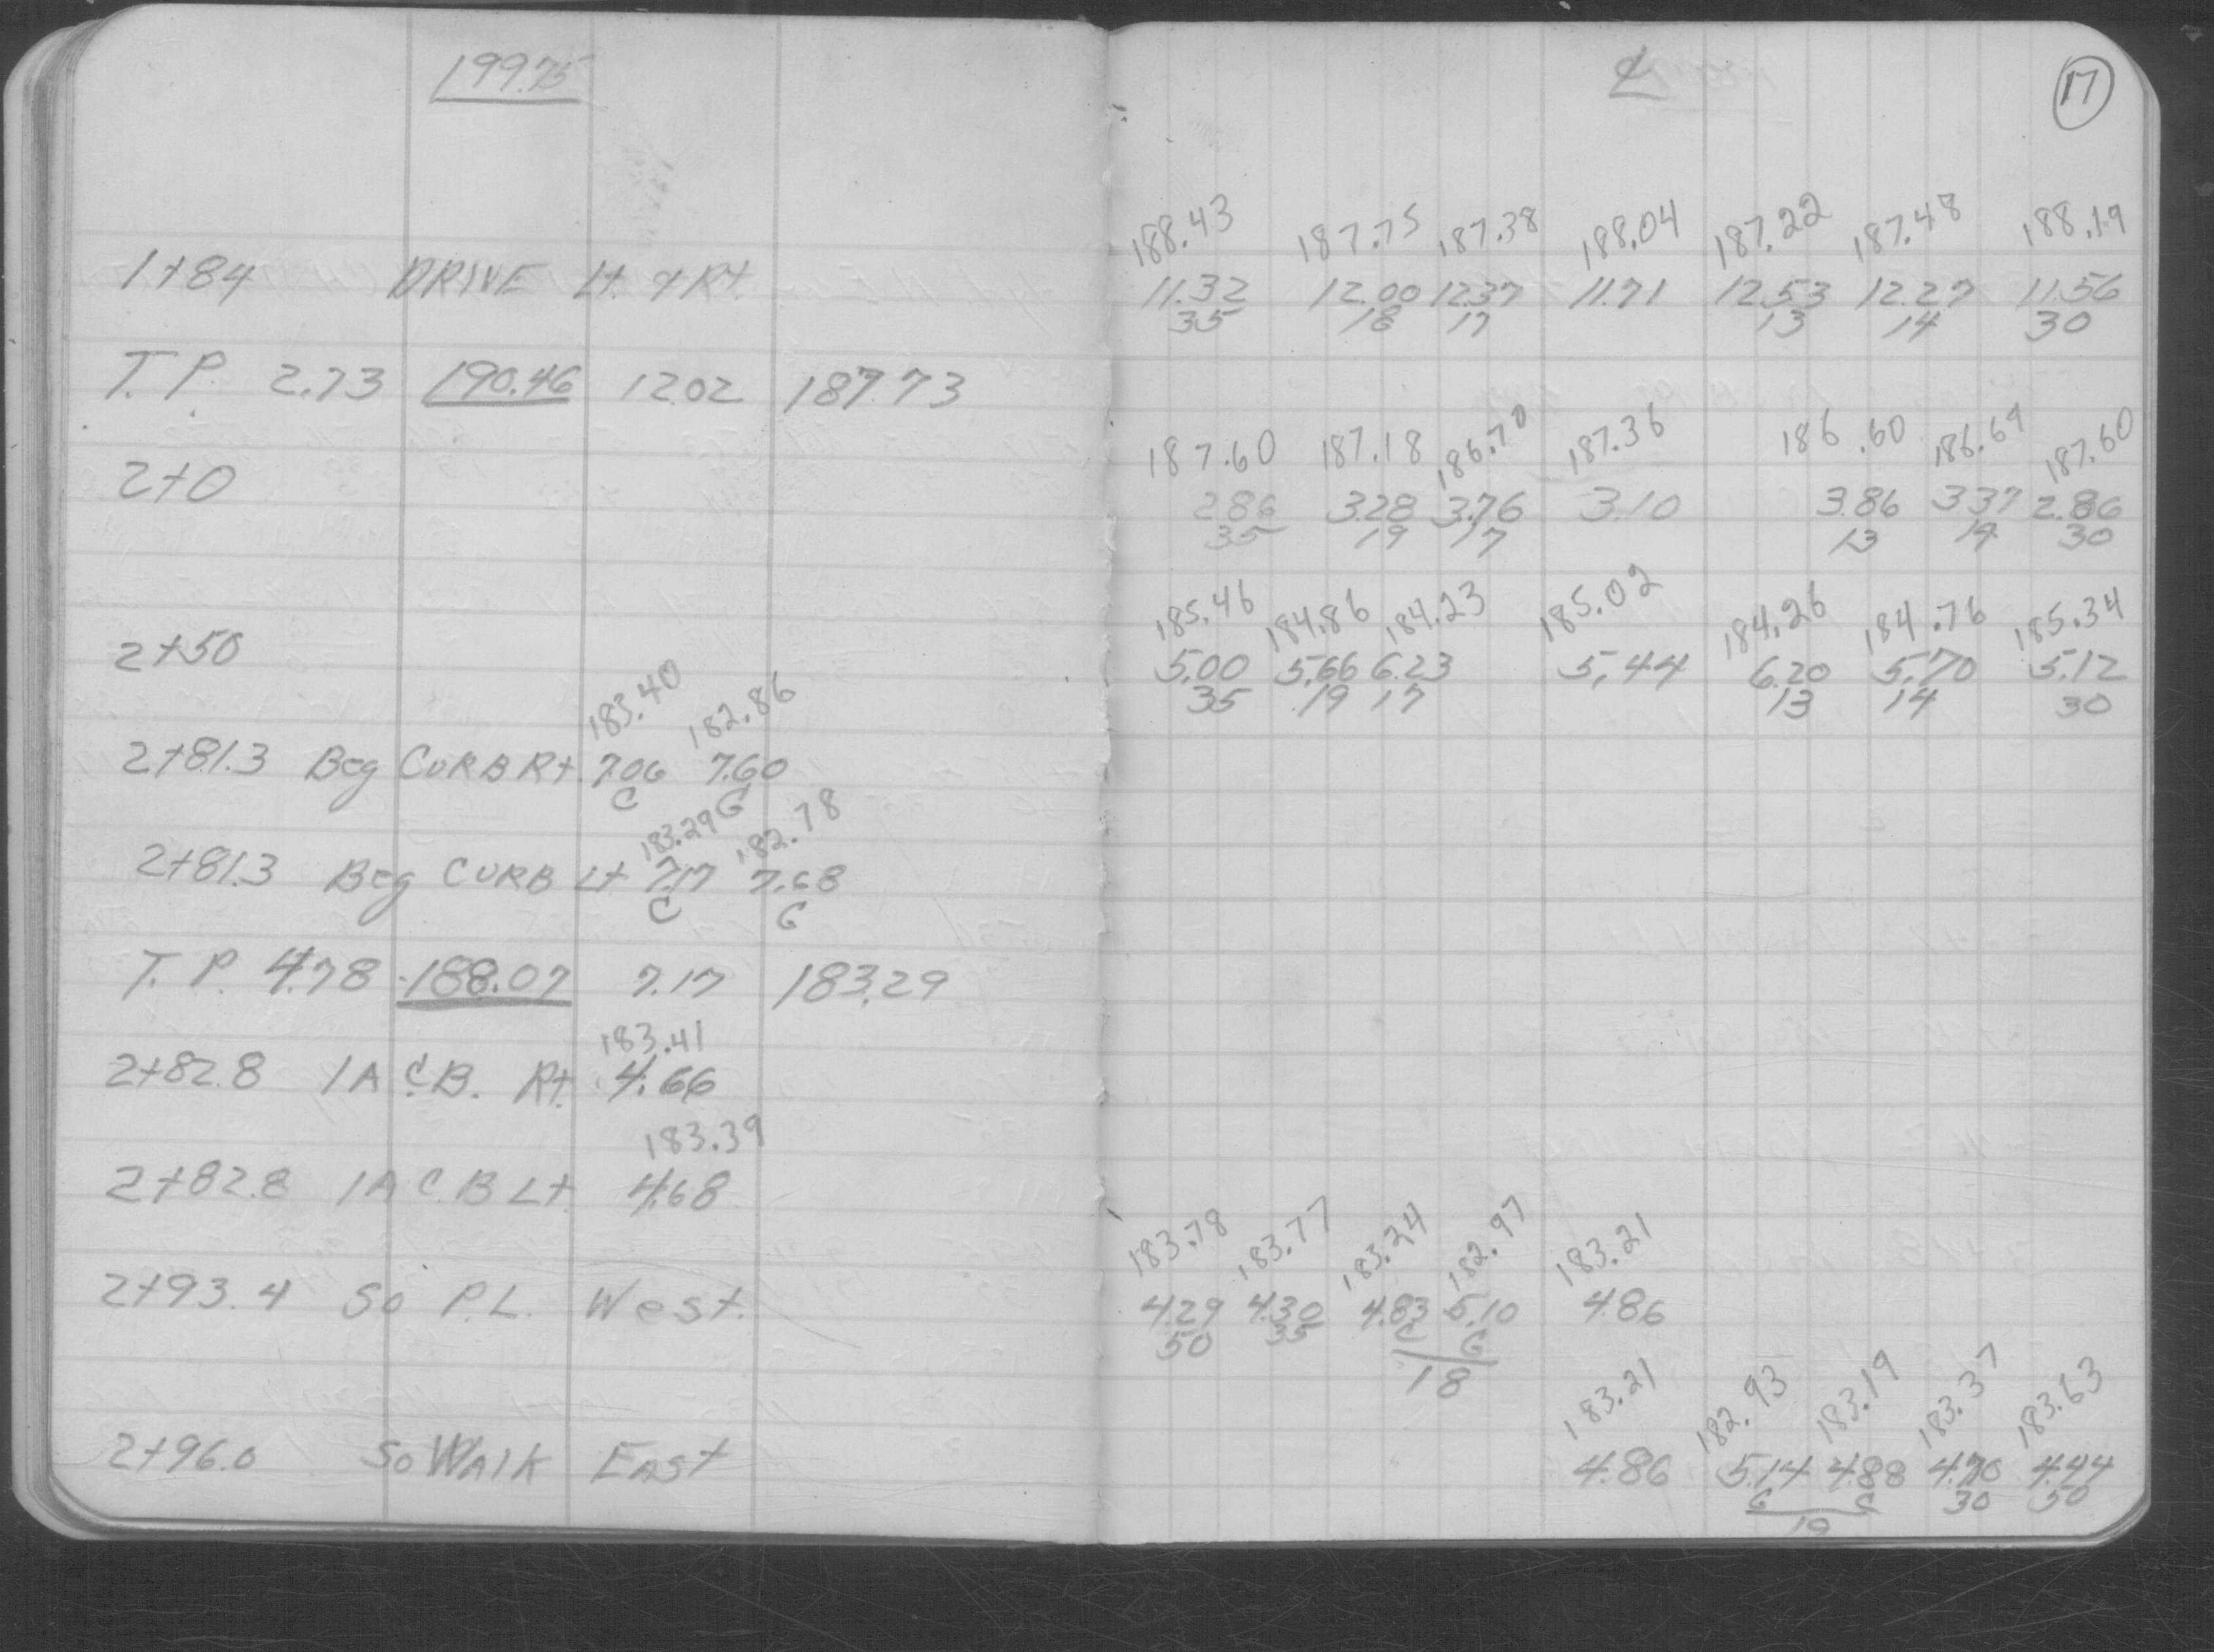 199.75
1+84 DRIVE Lt. & Rt.
T.P. 2.73 190.46 12.02 187.73
2+0
2+50
183.40 182.86
2+81.3 Beg CURB Rt. 7.06 7.60
C G
183.29 182.78
2+81.3 Beg CURB Lt 7.17 7.68
C G
T.P. 4.78 188.07 7.17 183.29
183.41
2+82.8 1A C.B. Rt. 4.66
183.39
2+82.8 1A C.B Lt. 4.68
2+93.4 So P.L. West.
2+96.0 So WALK EAST
℄ 17
188.43 187.75 187.38 188.04 187.22 187.48 188.19
11.32 12.00 12.37 11.71 12.53 12.27 11.56
35 18 17 13 14 30
187.60 187.18 186.70 187.36 186.60 186.69 187.60
2.86 3.28 3.76 3.10 3.86 3.37 2.86
35 19 17 13 14 30
185.46 184.86 184.23 185.02 184.26 184.76 185.34
5.00 5.66 6.23 5.44 6.20 5.70 5.12
35 19 17 13 14 30
183.78 183.77 183.24 182.97 183.21
4.29 4.30 4.83 5.10 4.86
50 35 C G
18
183.21 182.93 183.19 183.37 183.63
4.86 5.14 4.88 4.70 4.44
G C 30 50
19